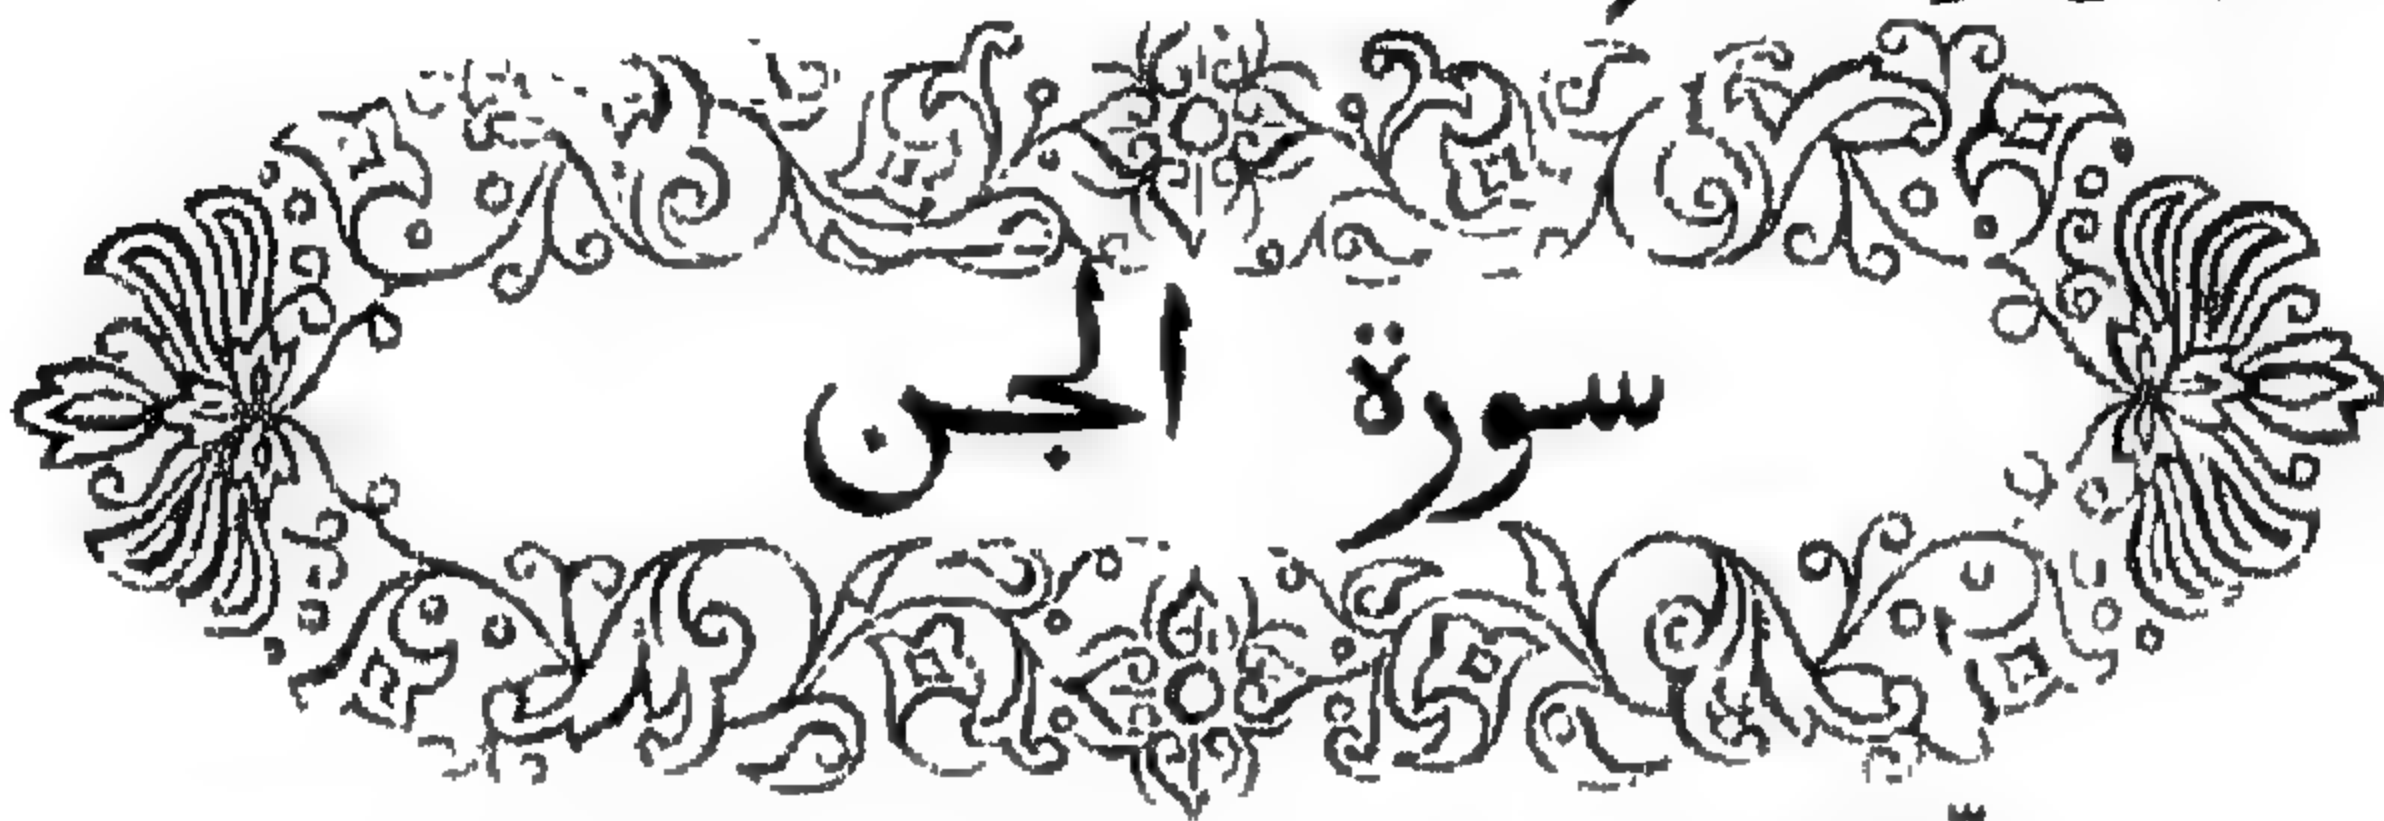 سورة الجن